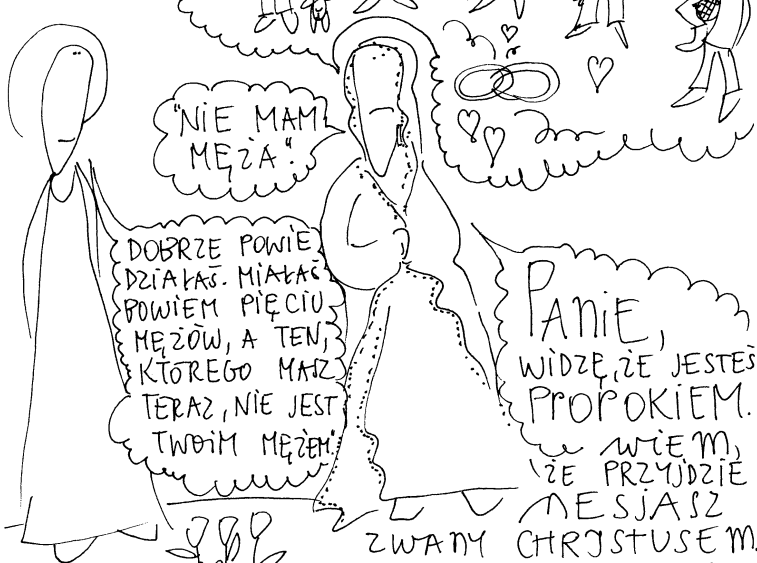 "NIE MAM
MĘŻA".
DOBRZE POWIE
DZIAŁAŚ. MIAŁAŚ
BOWIEM PIĘCIU
MĘŻÓW, A TEN,
KTÓREGO MASZ
TERAZ, NIE JEST
TWOIM MĘŻEM".
PANIE,
WIDZĘ, ŻE JESTEŚ
PROROKIEM.
WIEM,
ŻE PRZYJDZIE
MESJASZ
ZWANY CHRYSTUSEM.